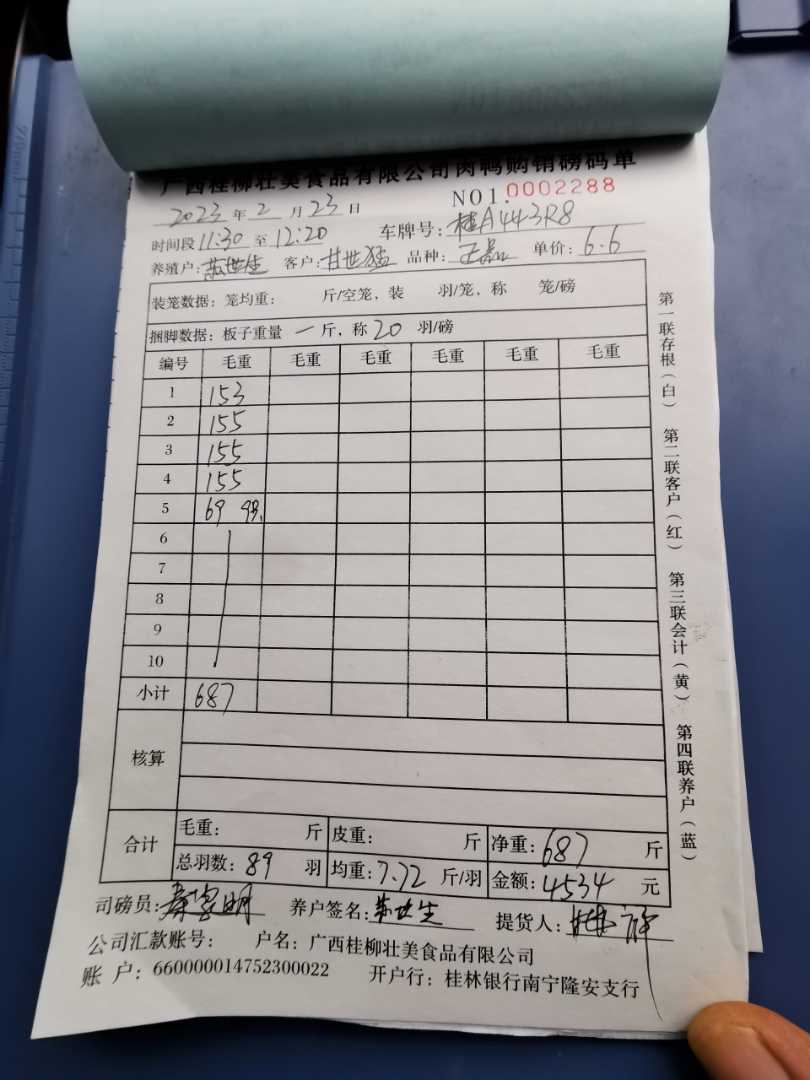 广西桂柳壮美食品有限公司肉鸭购销磅码单
NO1.0002288
2023年2月23日
时间段11:30至12:20 车牌号:桂A443R8
养殖户:苏世生 客户:甘世猛 品种: 单价:6.6
装笼数据:笼均重: 斤/空笼,装 羽/笼,称 笼/磅
捆脚数据:板子重量 一 斤,称20 羽/磅
编号 毛重 毛重 毛重 毛重 毛重 毛重
1 153
2 155
3 155
4 155
5 69 9羽.
6
7
8
9
10
小计 687
核算
合计 毛重: 斤 皮重: 斤 净重:687 斤
总羽数:89 羽 均重:7.72 斤/羽 金额:4534 元
司磅员: 养户签名:苏世生 提货人:
公司汇款账号: 户名:广西桂柳壮美食品有限公司
账户:660000014752300022 开户行:桂林银行南宁隆安支行
第一联存根(白) 第二联客户(红) 第三联会计(黄) 第四联养户(蓝)